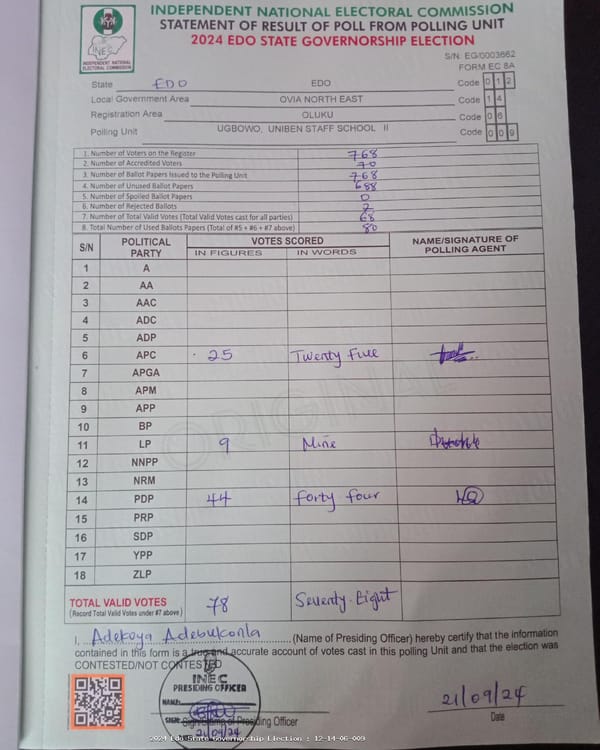 INDEPENDENT NATIONAL ELECTORAL COMMISSION
STATEMENT OF RESULT OF POLL FROM POLLING UNIT
2024 EDO STATE GOVERNORSHIP ELECTION
INEC
INDEPENDENT NATIONAL
ELECTORAL COMMISSION
S/N: EG/0003662
FORM EC 8A
State EDO EDO Code 0 1 2
Local Government Area OVIA NORTH EAST Code 1 4
Registration Area OLUKU Code 0 6
Polling Unit UGBOWO, UNIBEN STAFF SCHOOL II Code 0 0 9
1. Number of Voters on the Register 768
2. Number of Accredited Voters 70
3. Number of Ballot Papers Issued to the Polling Unit 768
4. Number of Unused Ballot Papers 688
5. Number of Spoiled Ballot Papers 0
6. Number of Rejected Ballots 2
7. Number of Total Valid Votes (Total Valid Votes cast for all parties) 68
8. Total Number of Used Ballots Papers (Total of #5 + #6 + #7 above) 80
S/N POLITICAL PARTY VOTES SCORED NAME/SIGNATURE OF POLLING AGENT
IN FIGURES IN WORDS
1 A
2 AA
3 AAC
4 ADC
5 ADP
6 APC 25 Twenty Five
7 APGA
8 APM
9 APP
10 BP
11 LP 9 Nine
12 NNPP
13 NRM
14 PDP 44 forty four
15 PRP
16 SDP
17 YPP
18 ZLP
TOTAL VALID VOTES 78 Seventy-Eight
(Record Total Valid Votes under #7 above)
ORIGINAL
I, Adekoya Adebukonla (Name of Presiding Officer) hereby certify that the information
contained in this form is a true and accurate account of votes cast in this polling Unit and that the election was
CONTESTED/NOT CONTESTED
INEC
PRESIDING OFFICER
NAME:
SIGN:
Signature of Presiding Officer
21/09/24
21/09/24
Date
2024 Edo State Governorship Election : 12-14-06-009